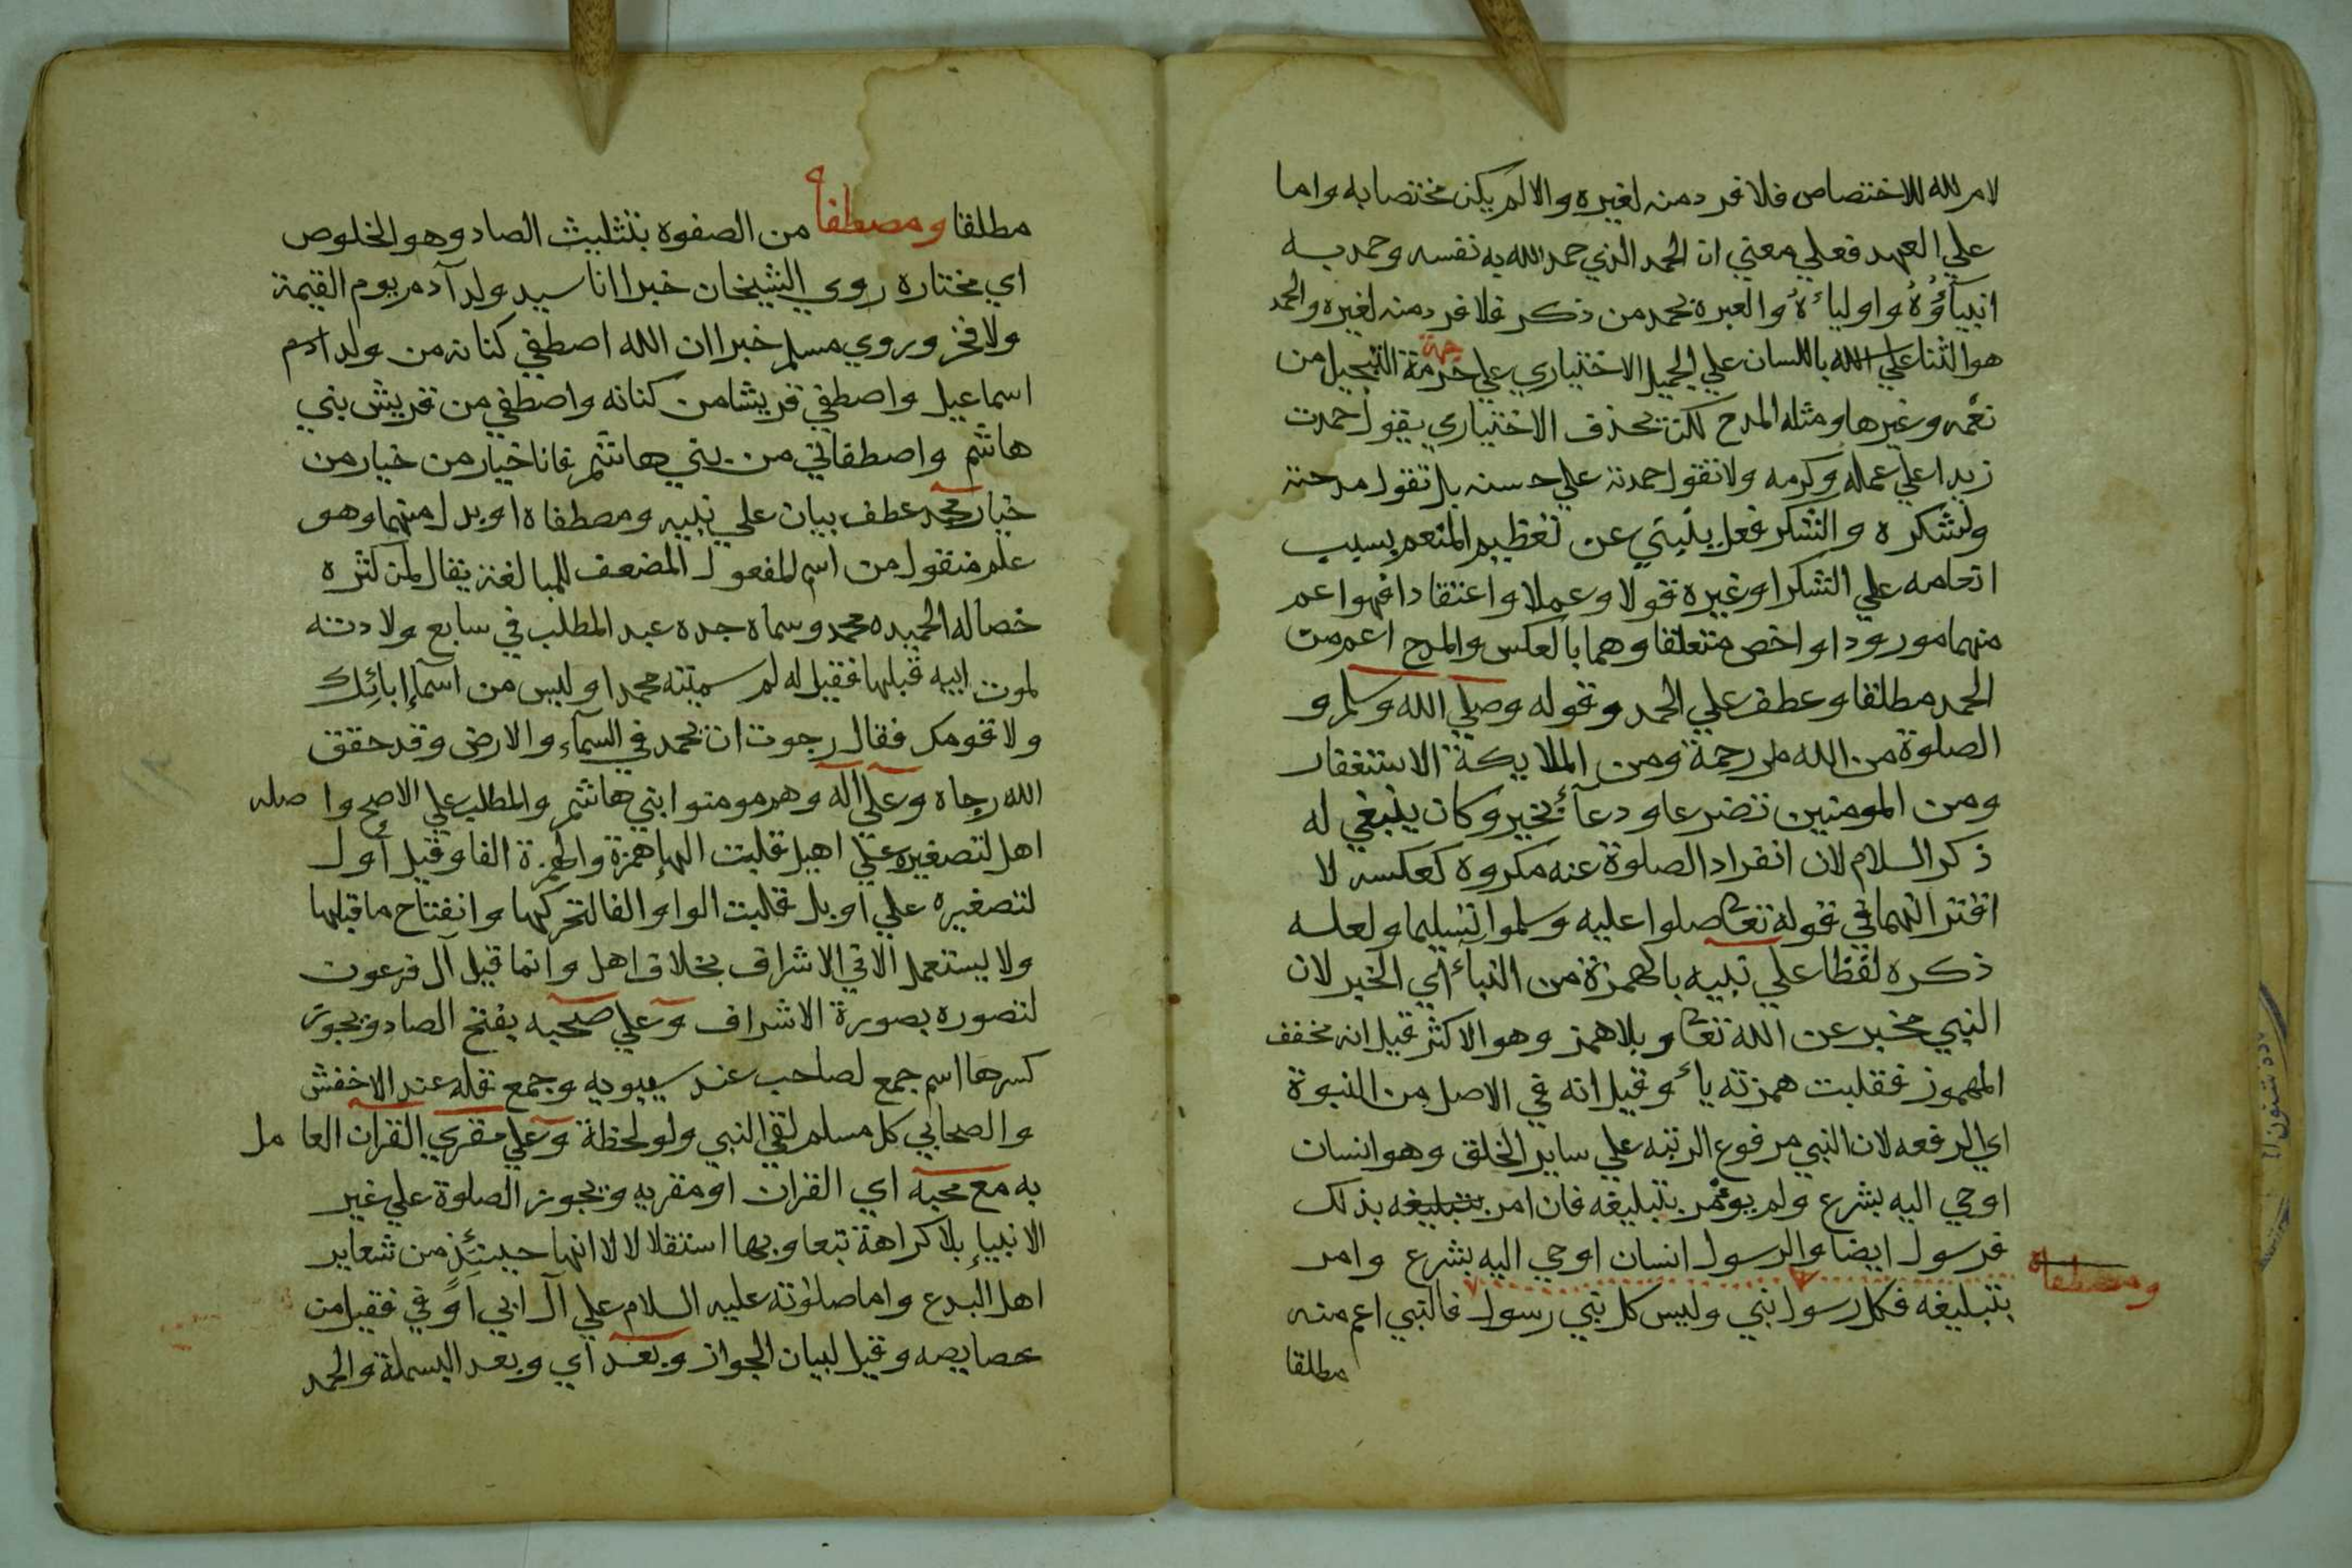 لام لله للاختصاص فلا فرد منه لغيره والا لم يكن مختصا به واما
علي العهد فعلي معني ان الحمد الذي حمد الله به نفسه وحمد به
انبيآؤُهُ واولياءهُ والعبرة بحمد من ذكر فلا فرد منه لغيره والحمد
هو الثنا علي الله باللسان علي الجميل الاختياري علي جهة التبجيل من
نعمه وغيرها ومثله المدح لكن بحذف الاختياري يقول حمدت
زيدا علي عمله وكرمه ولا تقول حمدته علي حسنه بل تقول مدحته
ولشكره والشكر فعل ينبي عن تعظيم المنعم بسبب
انعامه علي الشكر او غيره قولا وعملا واعتقادا فهو اعم
منهما مورودا واخص متعلقا وهما بالعكس والمدح اعم من
الحمد مطلقا وعطف علي الحمد وقوله وصلي الله وسلم و
الصلوة من الله رحمة ومن الملايكة الاستغفار
ومن المومنين تضرعا ودعآء بخير وكان ينبغي له
ذكر السلام لان انفراد الصلوة عنه مكروه كعكسه لا
اقترانهما في قوله تعا صلوا عليه وسلموا تسليما ولعله
ذكره لفظا علي نبيه بالهمزة من النبأ اي الخبر لان
النبي مخبر عن الله تعا وبلا همز وهو الاكثر قيل انه مخفف
المهموز فقلبت همزته ياء وقيل انه في الاصل من النبوة
اي الرفعه لان النبي مرفوع الرتبه علي ساير الخلق وهو انسان
اوحي اليه بشرع ولم يومر بتبليغه فان امر بتبليغه بذلك
فرسول ايضا والرسول انسان اوحي اليه بشرع وامر
ومصطفاه
بتبليغه فكل رسول نبي وليس كل نبي رسول فالنبي اعم منه
مطلقا
مطلقا ومصطفاه من الصفوة بتثليث الصاد وهو الخلوص
اي مختاره روي الشيخان خبرا انا سيد ولد آدم يوم القيمة
ولا فخر وروي مسلم خبرا ان الله اصطفي كنانه من ولد ادم
اسماعيل واصطفي قريشا من كنانه واصطفي من قريش بني
هاشم واصطفاني من بني هاشم فانا خيار من خيار من
خيار محمد عطف بيان علي نبيه ومصطفاه او بدل منهما وهو
علم منقول من اسم المفعول المضعف للمبالغة يقال لمن كثره
خصاله الحميده محمد وسماه جده عبد المطلب في سابع ولادته
لموت ابيه قبلها فقيل له لم سميته محمدا وليس من اسمآء ابائك
ولا قومك فقال رجوت ان يحمد في السمآء والارض وقد حقق
الله رجاه وعلي اله وهم مومنوا بني هاشم والمطلب علي الاصح واصله
اهل لتصغيره علي اهيل قلبت الهاء همزة والهمزة الفا وقيل أول
لتصغيره علي اويل قلبت الواو الفا لتحركها وانفتاح ما قبلها
ولا يستعمل الا في الاشراف بخلاف اهل وانما قيل آل فرعون
لتصوره بصورة الاشراف وعلي صحبه بفتح الصاد ويجوز
كسرها اسم جمع لصاحب عند سيبويه وجمع قله عند الاخفش
والصحابي كل مسلم لقي النبي ولو لحظة وعلي مقري القران العامل
به مع محبه اي القران او مقريه ويجوز الصلوة علي غير
الانبياء بلا كراهة تبعا وبها استقلالا لا انها حينئذٍ من شعاير
اهل البدع واما صلوته عليه السلام علي آل ابي اوفي فقيل من
خصايصه وقيل لبيان الجواز وبعد اي وبعد البسملة والحمد